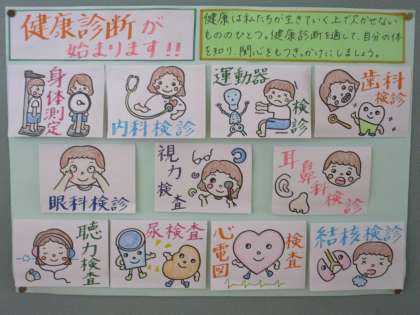 健康診断が
始まります!!
健康は私たちが生きていく上で欠かせない
もののひとつ。健康診断を通して、自分の体
を知り、関心をもつきっかけにしましょう。
身体測定
内科検診
運動器検診
歯科検診
眼科検診
視力検査
耳鼻科検診
聴力検査
尿検査
心電図検査
結核検診